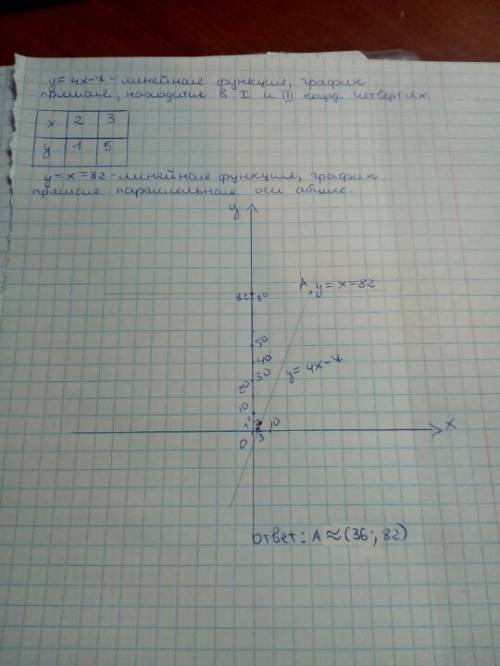 y = 4x-7 - линейная функция, график
прямая, находится в I и III коорд. четвертях.
x 2 3
y 1 5
y = x = 82 - линейная функция, график
прямая параллельная оси абцисс.
y
82 80
A, y = x = 82
50
40
30
20
10
y = 4x-7
1 2 10 x
0 3
ответ: A ≈ (36; 82)